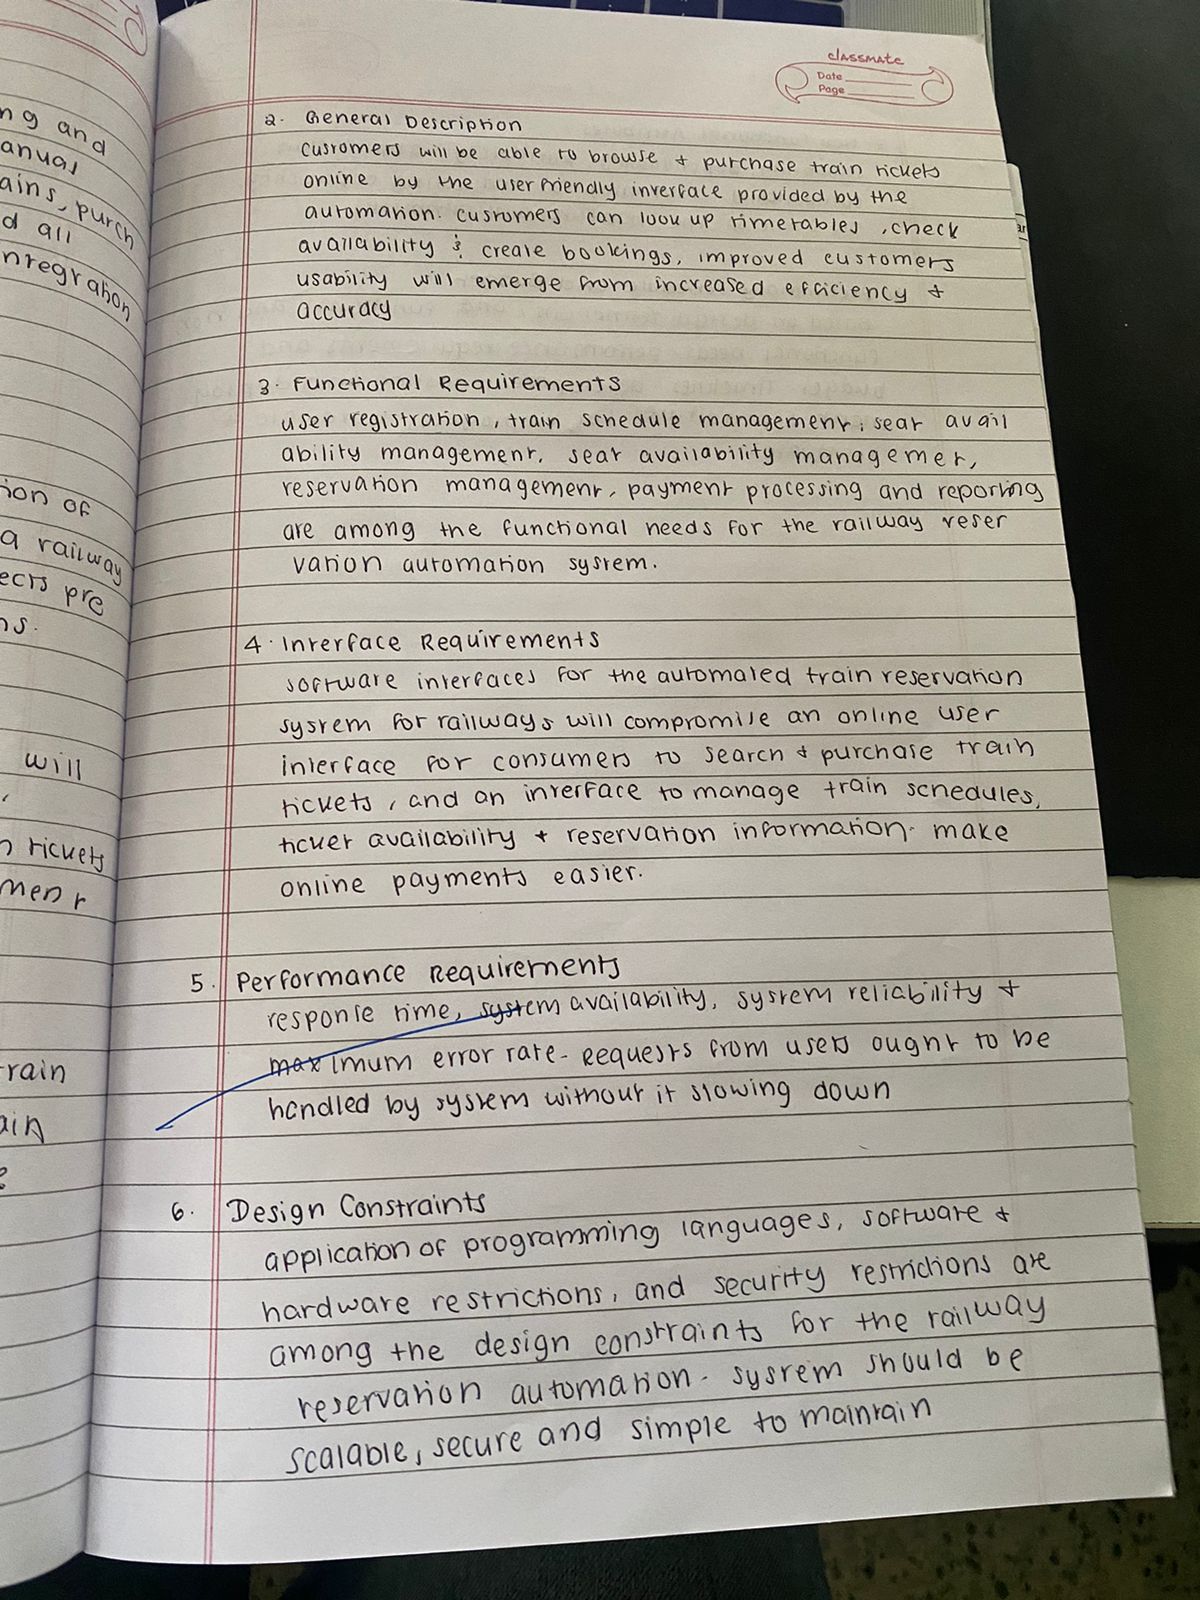 ng and
anual
ains, purch
d all
ntegration
ion of
a railway
ects pre
ns.
will
n tickets
ment
rain
ain
classmate
Date
Page
2. General Description
customers will be able to browse & purchase train tickets
online by the user friendly interface provided by the
automation. customers can look up timetables, check
availability & create bookings, improved customers
usability will emerge from increased efficiency &
accuracy
3. Functional Requirements
user registration, train schedule management, seat avail
ability management, seat availability managemer,
reservation management, payment processing and reporting
are among the functional needs for the railway reser
vation automation system.
4. Interface Requirements
software interfaces for the automated train reservation
system for railways will compromise an online user
interface for consumers to search & purchase train
tickets, and an interface to manage train schedules,
ticket availability & reservation information. make
online payments easier.
5. Performance Requirements
response time, system availability, system reliability &
maximum error rate. Requests from users ought to be
handled by system without it slowing down
6. Design Constraints
application of programming languages, software &
hardware restrictions, and security restrictions are
among the design constraints for the railway
reservation automation. system should be
scalable, secure and simple to maintain